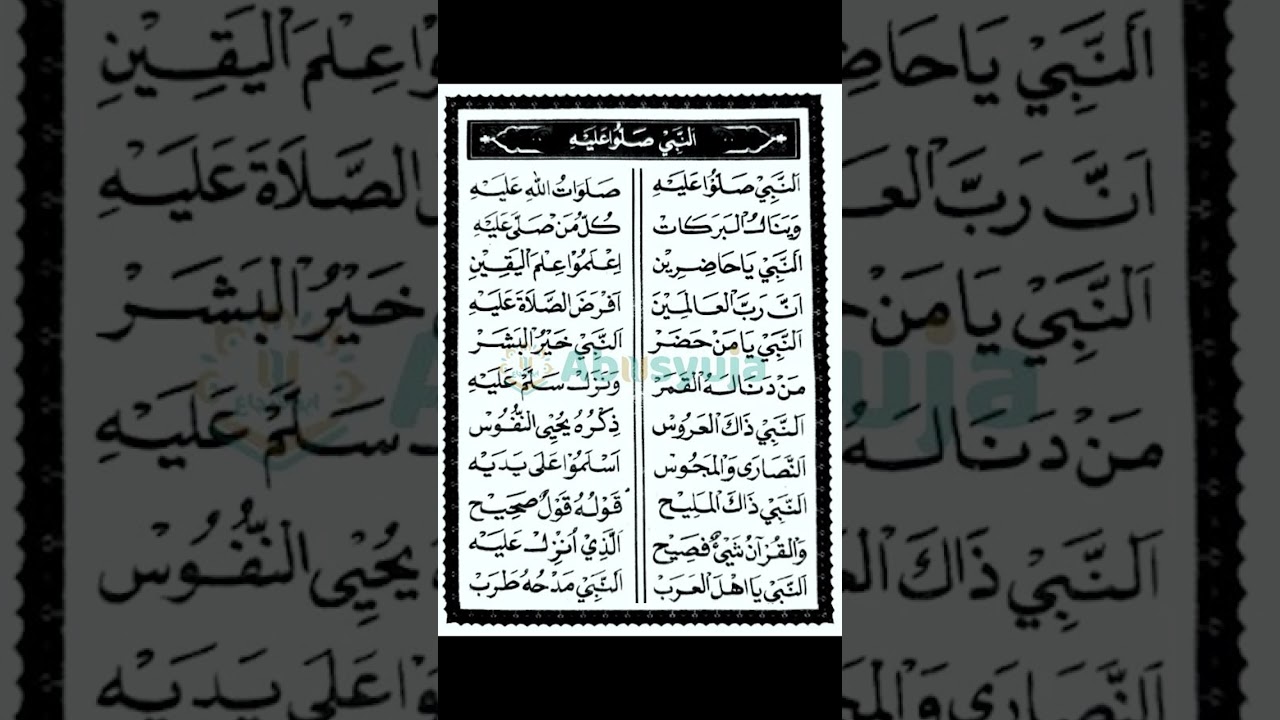 اَلنَّبِيْ صَلُّوْا عَلَيْهِ
اَلنَّبِيْ صَلُّوْا عَلَيْهِ صَلَوَاتُ اللهِ عَلَيْهِ
وَيَنَالُ الْبَرَكَاتْ كُلُّ مَنْ صَلَّى عَلَيْهِ
اَلنَّبِيْ يَا حَاضِرِيْن اِعْلَمُوْا عِلْمَ الْيَقِيْنِ
اَنَّ رَبَّ الْعَالَمِيْنَ اَفْرَضَ الصَّلَاةَ عَلَيْهِ
اَلنَّبِيْ يَا مَنْ حَضَرْ اَلنَّبِيْ خَيْرُ الْبَشَرْ
مَنْ دَنَا لَهُ الْقَمَرْ وَنَزَلْ سَلَّمْ عَلَيْهِ
اَلنَّبِيْ ذَاكَ الْعَرُوْسْ ذِكْرُهُ يُحْيِى النُّفُوْسْ
اَلنَّصَارَى وَالْمَجُوْسْ اَسْلَمُوْا عَلَى يَدَيْهِ
اَلنَّبِيْ ذَاكَ الْمَلِيْحْ قَوْلُهُ قَوْلٌ صَحِيْح
وَالْقُرْآنُ شَيْئٌ فَصِيْحْ اَلَّذِيْ اُنْزِلْ عَلَيْهِ
اَلنَّبِيْ يَا اَهْلَ الْعَرَبْ اَلنَّبِيْ مَدْحُهُ طَرَبْ
Abusyuja